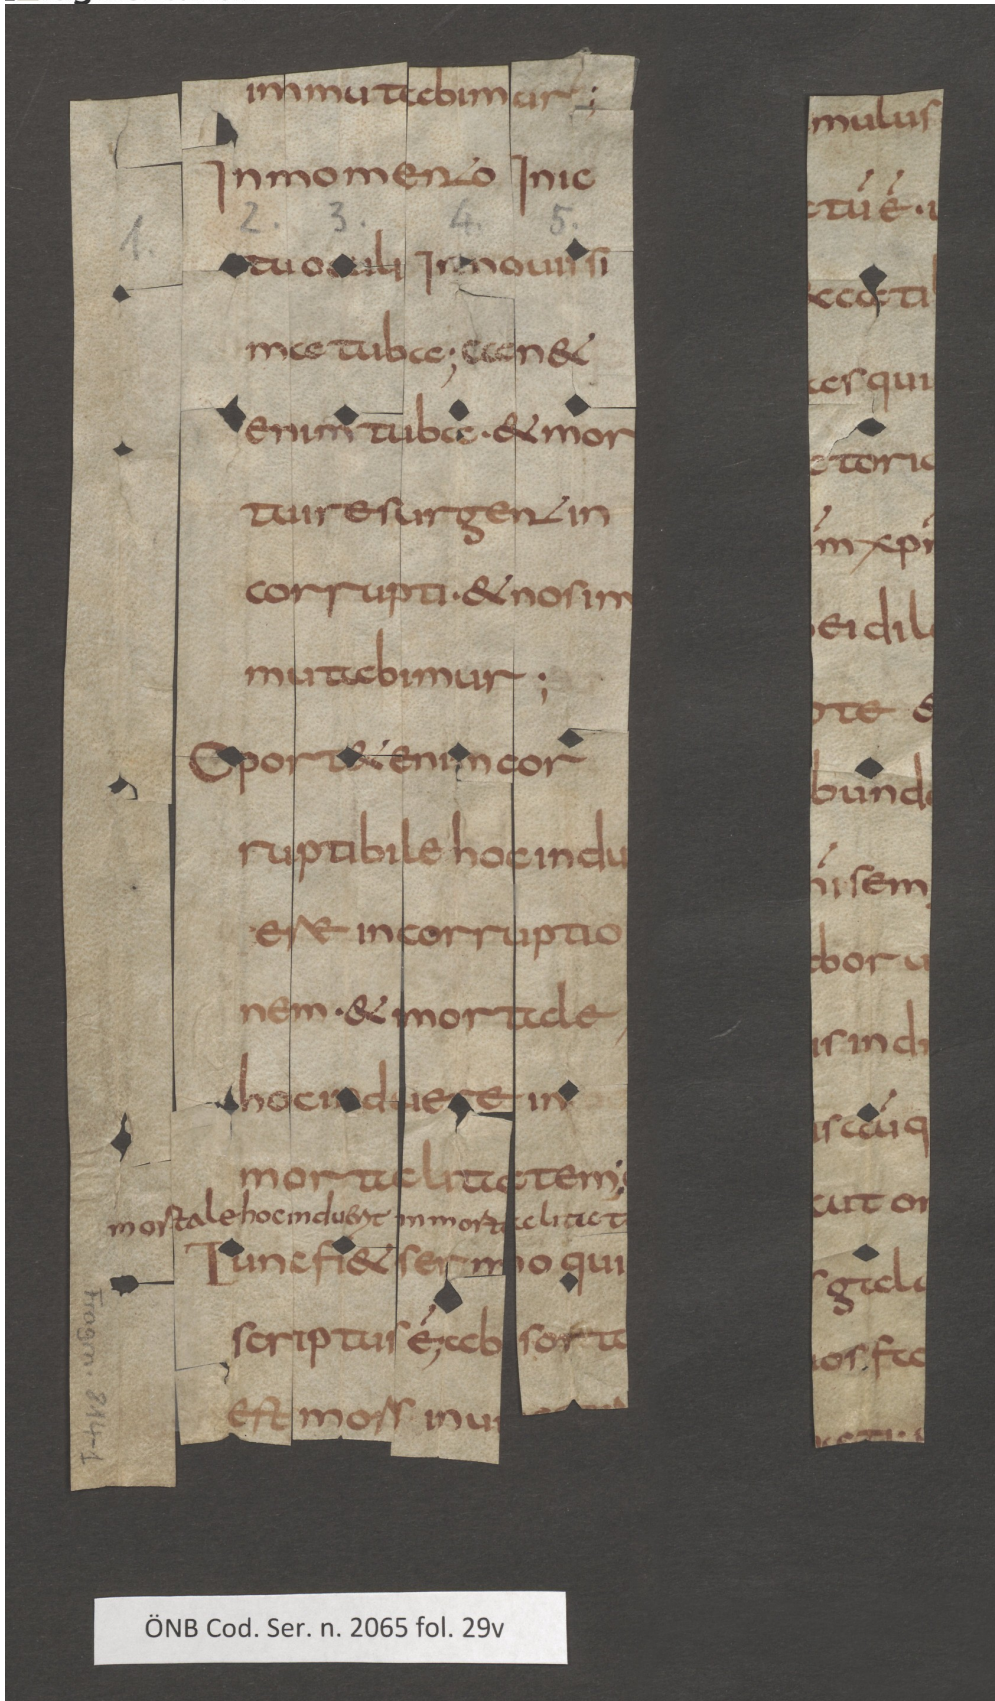 immutabimur ;
In momento In ic
2. 3. 4. 5.
1.
tu oculi In nouissi
ma tuba; can&
enim tuba · & mor
tui resurgent in
corrupti · & nos im
mutabimur ;
Oport& enim cor
ruptibile hoc indu
ere incorruptio
nem · & mortale
hoc induere in
mortalitatem;
mortale hoc induerit inmortalitat
Tunc fi& sermo qui
scriptus é; absorta
est mors in ui
Fragm. 814-1
mulus
ctú é · u
&ccati
es qui
toria
ím xpí
ei dil
te &
bunda
ní sem
abor u
is in d
is aúq
aut or
s gala
os fra
ÖNB Cod. Ser. n. 2065 fol. 29v